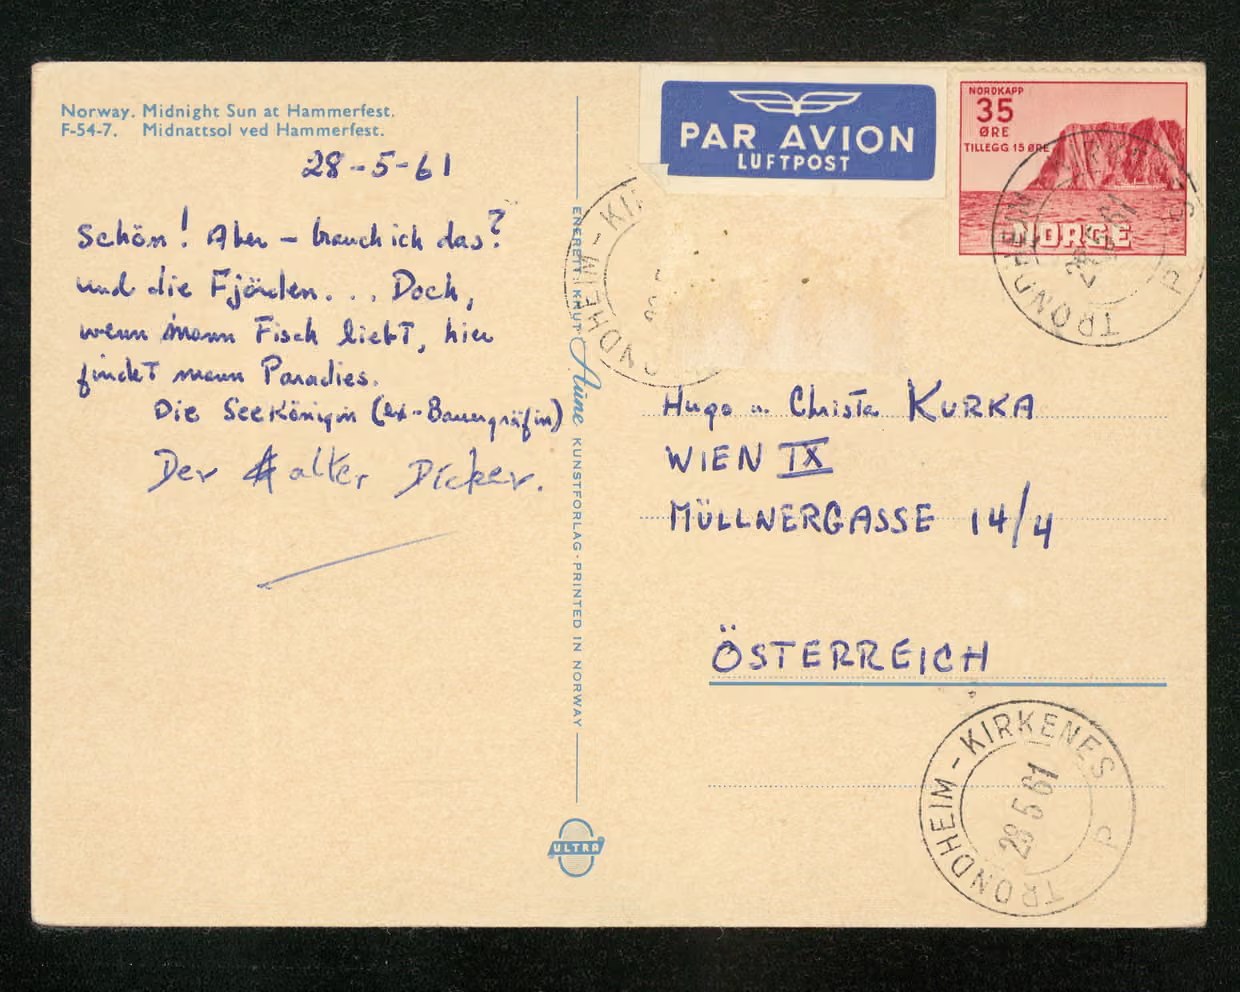 Norway. Midnight Sun at Hammerfest.
F-54-7. Midnattsol ved Hammerfest.
28-5-61
Schön! Aber – brauch ich das?
und die Fjörden... Doch,
wenn mann Fisch liebt, hier
findet mann Paradies.
Die Seekönigin (ex-Bauerngräfin)
Der alter Dicker.
ENERETT: KNUT Aune KUNSTFORLAG · PRINTED IN NORWAY
ULTRA
PAR AVION
LUFTPOST
NORDKAPP
35
ØRE
TILLEGG 15 ØRE
NORGE
TRONDHEIM
28 5 61
P
NDHEIM - KI
Hugo u. Christa KURKA
WIEN IX
MÜLLNERGASSE 14/4
ÖSTERREICH
TRONDHEIM - KIRKENES
28 5 61
P